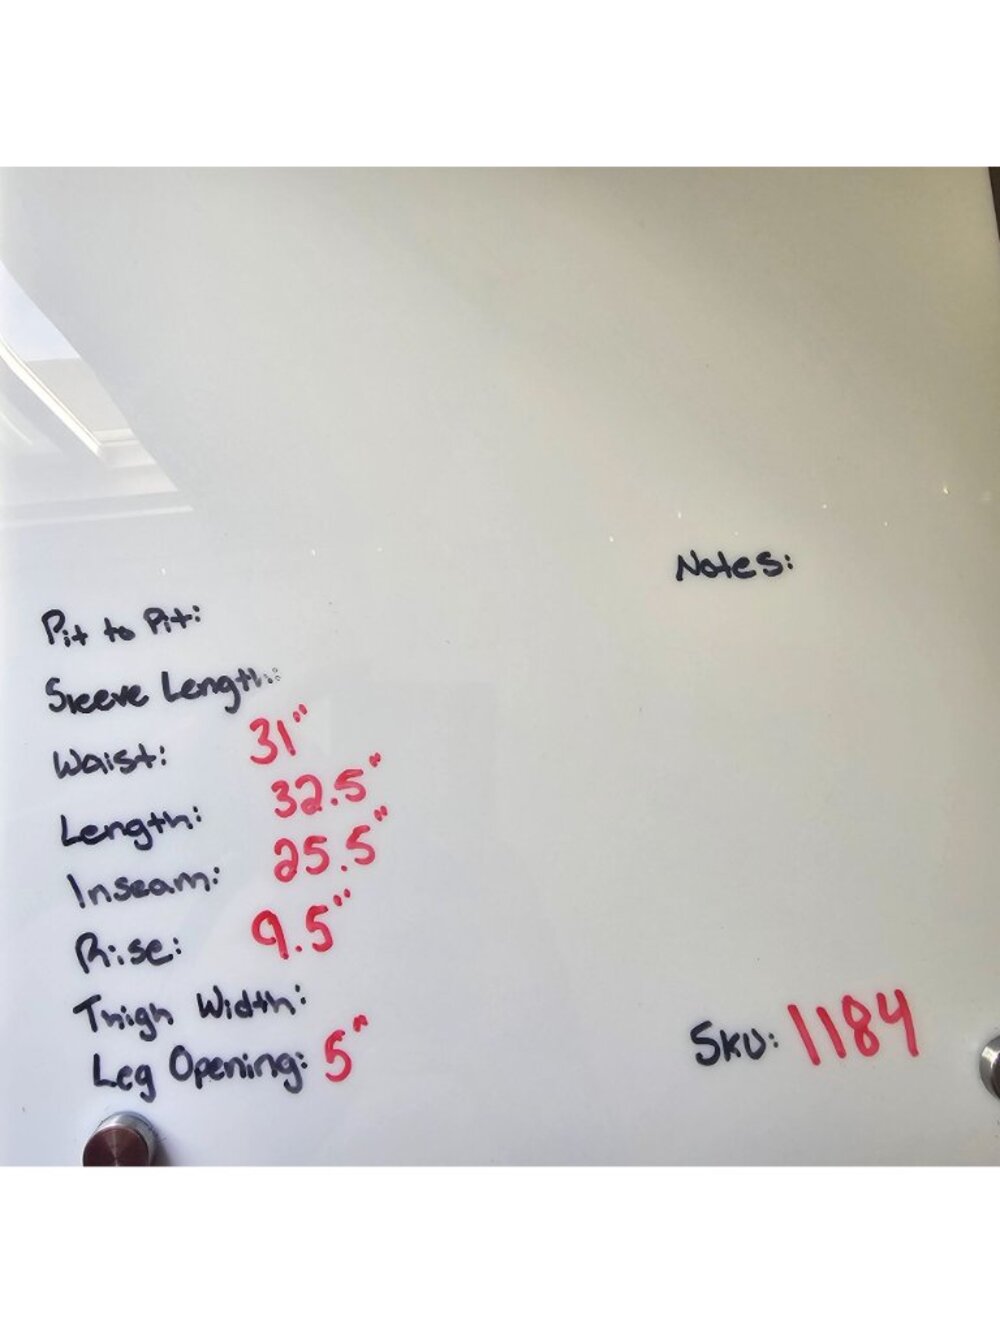 Notes:
Pit to Pit:
Sleeve Length:
Waist: 31"
Length: 32.5"
Inseam: 25.5"
Rise: 9.5"
Thigh Width:
Leg Opening: 5"
SKU: 1184